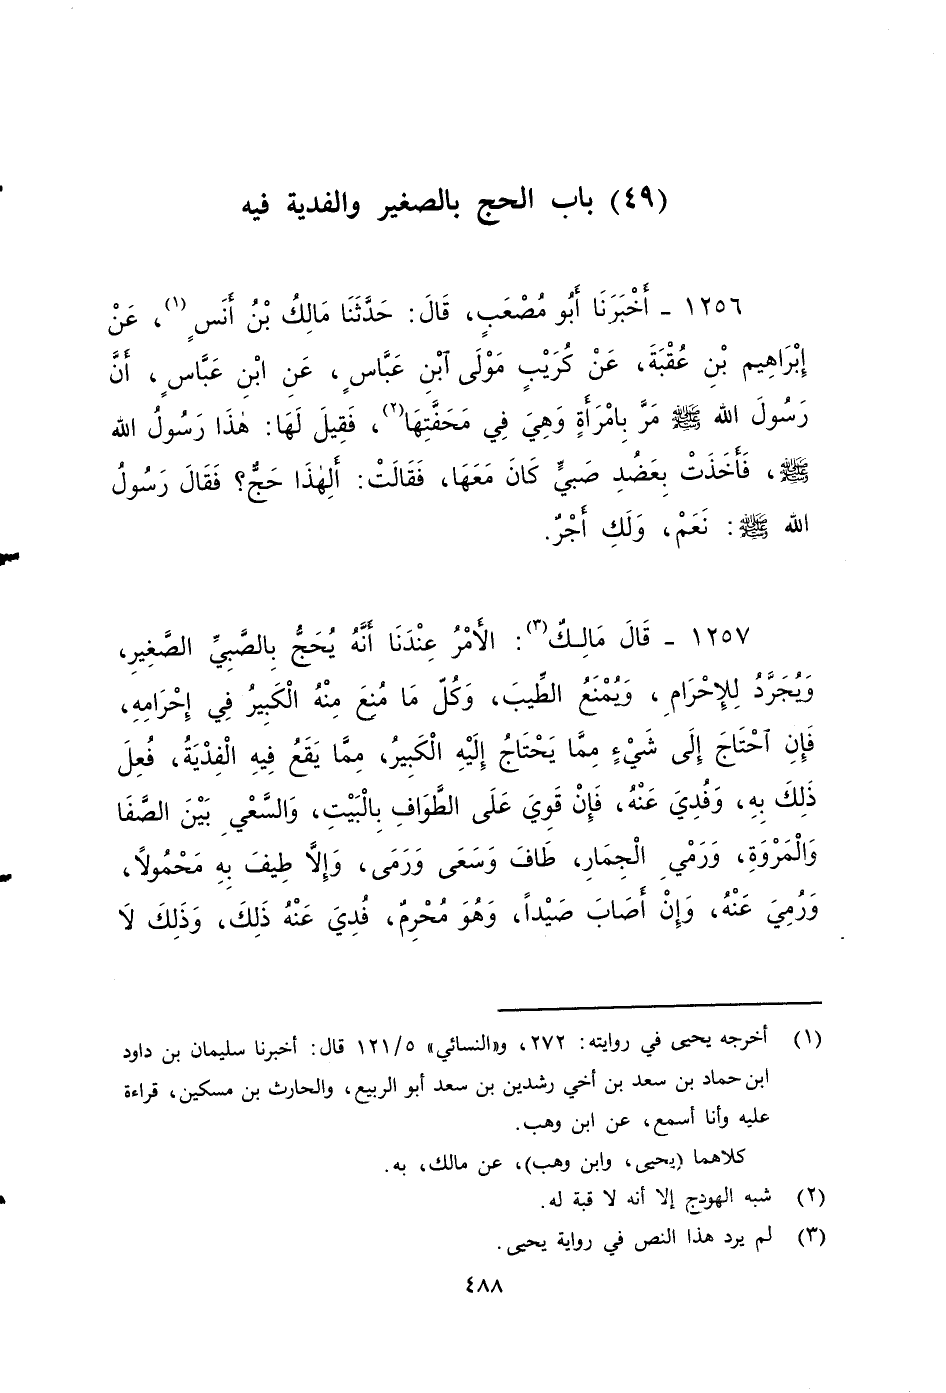 (٤٩) باب الحج بالصغير والفدية فيه
١٢٥٦ ـ أَخْبَرَنَا أَبُو مُصْعَبٍ، قَالَ: حَدَّثَنَا مَالِكُ بْنُ أَنَسٍ(١)، عَنْ
إِبْرَاهِيم بْنِ عُقْبَةَ، عَنْ كُرَيْبٍ مَوْلَى ٱبْنِ عَبَّاسٍ، عَنِ ابْنِ عَبَّاسٍ، أَنَّ
رَسُولَ الله ﷺ مَرَّ بِامْرَأَةٍ وَهِيَ فِي مَحَفَّتِهَا(٢)، فَقِيلَ لَهَا: هٰذَا رَسُولُ الله
ﷺ، فَأَخَذَتْ بِعَضُدِ صَبيٍّ كَانَ مَعَهَا، فَقَالَتْ: أَلِهٰذَا حَجٌّ؟ فَقَالَ رَسُولُ
الله ﷺ: نَعَمْ، وَلَكِ أَجْرٌ.
١٢٥٧ ـ قَالَ مَالِكٌ(٣): الأَمْرُ عِنْدَنَا أَنَّهُ يُحَجُّ بِالصَّبِيِّ الصَّغِيرِ،
وَيُجَرَّدُ لِلإِحْرَامِ، وَيُمْنَعُ الطِّيبَ، وَكُلّ مَا مُنِعَ مِنْهُ الْكَبِيرُ فِي إِحْرَامِهِ،
فَإِنِ ٱحْتَاجَ إِلَى شَيْءٍ مِمَّا يَحْتَاجُ إِلَيْهِ الْكَبِيرُ، مِمَّا يَقَعُ فِيهِ الْفِدْيَةُ، فُعِلَ
ذَلِكَ بِهِ، وَفُدِيَ عَنْهُ، فَإِنْ قَوِيَ عَلَى الطَّوَافِ بِالْبَيْتِ، وَالسَّعْيِ بَيْنَ الصَّفَا
وَالْمَرْوَةِ، وَرَمْيِ الْجِمَارِ، طَافَ وَسَعَى وَرَمَى، وَإِلَّا طِيفَ بِهِ مَحْمُولاً،
وَرُمِيَ عَنْهُ، وَإِنْ أَصَابَ صَيْداً، وَهُوَ مُحْرِمٌ، فُدِيَ عَنْهُ ذَلِكَ، وَذَلِكَ لَا
(١) أخرجه يحيى في روايته: ٢٧٢، و«النسائي» ١٢١/٥ قال: أخبرنا سليمان بن داود
ابن حماد بن سعد بن أخي رشدين بن سعد أبو الربيع، والحارث بن مسكين، قراءة
عليه وأنا أسمع، عن ابن وهب.
كلاهما (يحيى، وابن وهب)، عن مالك، به.
(٢) شبه الهودج إلا أنه لا قبة له.
(٣) لم يرد هذا النص في رواية يحيى.
٤٨٨